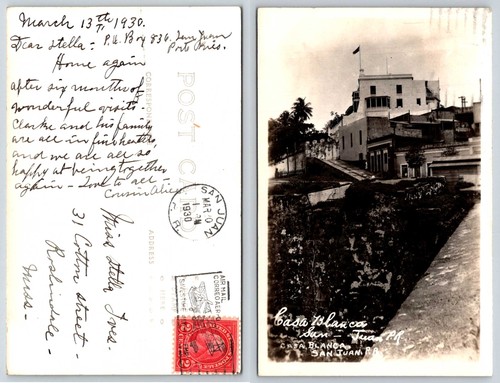 March 13th 1930.
Dear Stella - P.O. Box 836, San Juan
Porto Rico.
Home again
after six months of
wonderful visits.
Clarke and his family
are all in fine health
and we are all so
happy at being together
again - Love to all -
Cousin Alice
POST
CORRESPONDENCE
ADDRESS
SAN JUAN
MAR
1930
P.R.
AIR MAIL
Miss Stella Ives.
31 Cotton street -
Roslindale -
Mass -
2
2
Casa Blanca
San Juan P.R.
CASA BLANCA
SAN JUAN P.R.